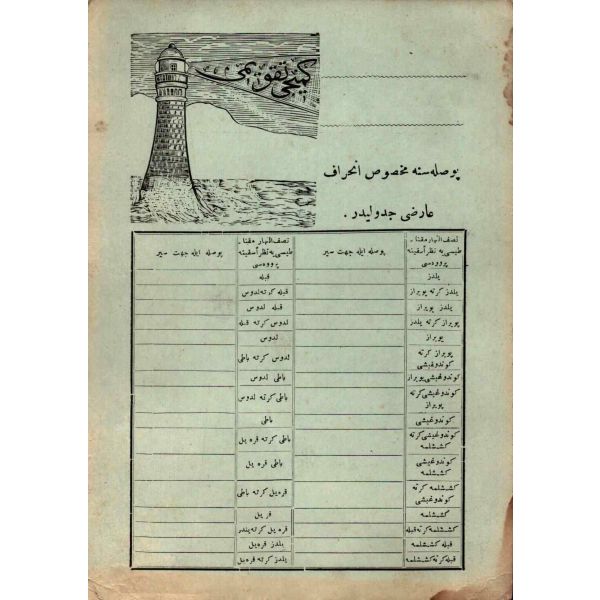 كميجى تقويمى
پوصله‌سنه مخصوص انحراف
عارضى جدوليدر .
نصف النهار مقنا-
طيسى‌يه نظراً سفينه
پرووه‌سى
پوصله ايله جهت سير
يلدز
يلدز كرته پويراز
يلدز پويراز
پويراز كرته يلدز
پويراز
پويراز كرته
كوندوغيشى
كوندوغيشى پويراز
كوندوغيشى كرته
پويراز
كوندوغيشى
كوندوغيشى كرته
كششلمه
كوندوغيشى
كششلمه
كششلمه كرته
كوندوغيشى
كششلمه
كششلمه كرته قبله
قبله كششلمه
قبله كرته كششلمه
نصف النهار مقنا-
طيسى‌يه نظراً سفينه
پرووه‌سى
پوصله ايله جهت سير
قبله
قبله كرته لدوس
قبله لدوس
لدوس كرته قبله
لدوس
لدوس كرته باطى
باطى لدوس
باطى كرته لدوس
باطى
باطى كرته قره يل
باطى قره يل
قره يل كرته باطى
قره يل
قره يل كرته يلدز
يلدز قره يل
يلدز كرته قره يل